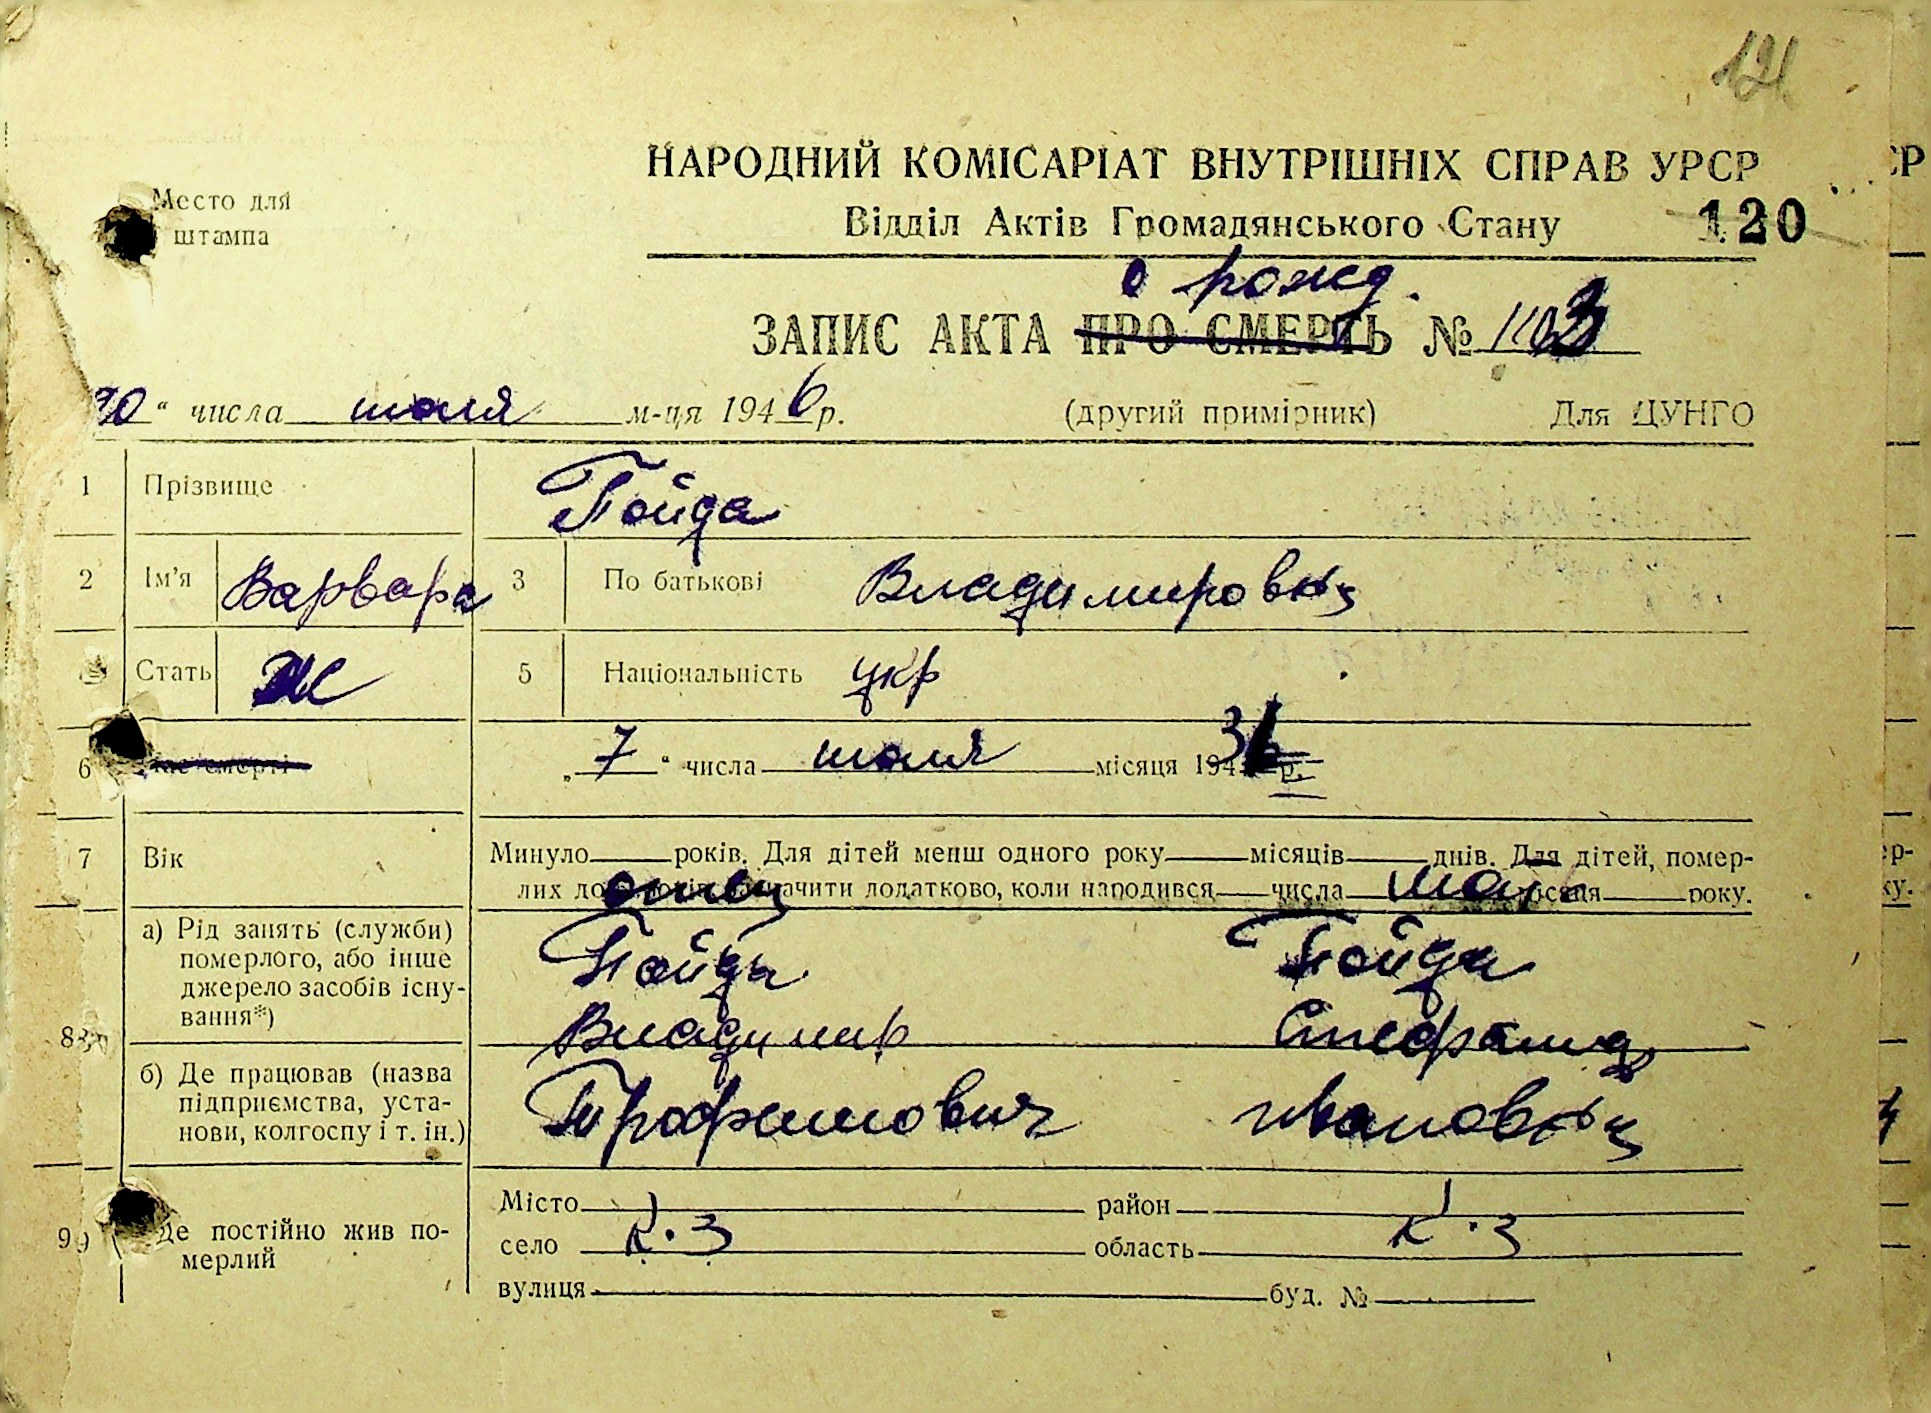 121
НАРОДНИЙ КОМІСАРІАТ ВНУТРІШНІХ СПРАВ УРСР
Место для
штампа
Відділ Актів Громадянського Стану 120
о рожд.
ЗАПИС АКТА ПРО СМЕРТЬ №
" числа июля м-ця 1946 р. (другий примірник) Для ЦУНГО
1 Прізвище Пойда
2 Ім'я Варвара 3 По батькові Владимировны
Стать Ж 5 Національність укр
6 Час смерті „7" числа июля місяця 19 р.
7 Вік Минуло років. Для дітей менш одного року місяців днів. Для дітей, помер-
лих до зазначити додатково, коли народився числа місяця року.
отец мать
а) Рід занять (служби)
померлого, або інше
джерело засобів існу-
вання*)
8
б) Де працював (назва
підприємства, уста-
нови, колгоспу і т. ін.)
Пойда Пойда
Владимир Стефанида
Трофимович Ивановны
9 Де постійно жив по-
мерлий
Місто район
село К.З область К.З
вулиця буд. №